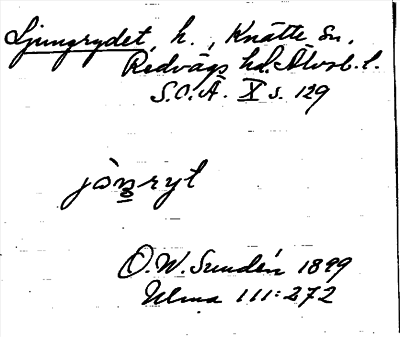 Ljungrydet, h., Knätte sn.
Redvägs hd. Älvsb. l.
S.O.Ä. X s. 129
jòn̲ryt
O.W. Sundén 1899
Ulma 111:272